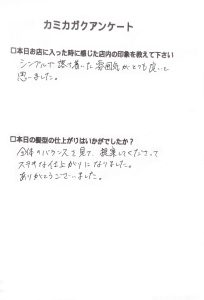 カミカガクアンケート
□本日お店に入った時に感じた店内の印象を教えて下さい
シンプルで落ち着いた雰囲気がとても良いと
思いました。
□本日の髪型の仕上がりはいかがでしたか?
全体のバランスを見て、提案してくださって
ステキな仕上がりになりました。
ありがとうございました。